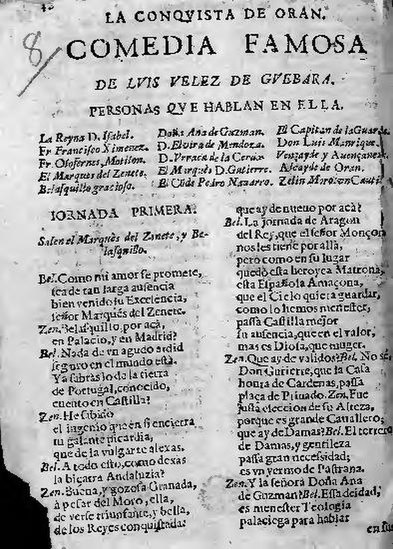 8
LA CONQVISTA DE ORAN.
COMEDIA FAMOSA
DE LVIS VELEZ DE GVEBARA.
PERSONAS QVE HABLAN EN ELLA.
La Reyna D. Isabel.
Fr. Francisco Ximenez.
Fr. Osofernes, Motilon.
El Marques del Zenete.
Belasquillo gracioso.
Doña Ana de Guzman.
D. Elvira de Mendoza.
D. Vrraca de la Cerda
El Marquès D. Gutierre.
El Cõde Pedro Navarro.
El Capitan de la Guarda.
Don Luis Manrique.
Venzayde y
Alcayde de Oran.
Zelin Moro
IORNADA PRIMERA.
Salen el Marquès del Zenete, y Be-
lasquillo.
Bel. Como mi amor se promete,
sea de tan larga ausencia
bien venido su Excelencia,
señor Marquès del Zenete.
Zen. Belasquillo, por acà,
en Palacio, y en Madrid?
Bel. Nada de vn agudo ardid
seguro en el mundo està.
Ya sabràs toda la tierra
de Portugal, conocido,
cuento en Castilla?
Zen. He sabido
el ingenio que en si encierra
tu galante picardia,
que de la vulgar te alexas.
Bel. A todo esto, como dexas
la bizarra Andaluzia?
Zen. Buena, y gozosa Granada,
à pesar del Moro, ella,
de verse triunfante, y bella,
de los Reyes conquistada:
que ay de nueuo por acà?
Bel. La jornada de Aragon
del Rey, que el señor Monçon
nos les tiene por allà,
pero como en su lugar
quedò esta heroyca Matrona,
esta Española Amaçona,
que el Cielo quiera guardar,
como lo hemos menester,
passa Castilla mejor
su ausencia, que en el valor,
mas es Diosa, que muger.
Zen. Que ay de validos? Bel. No sè,
Don Gutierre, que la Casa
honra de Cardenas, passa
plaça de Priuado. Zen. Fue
justa eleccion de su Alteza,
porque es grande Cauallero;
que ay de Damas? Bel. El terrero
de Damas, y gentileza
passa gran necessidad;
es vn yermo de Pastrana.
Zen. Y la señora Doña Ana
de Guzman? Bel. Essa deidad,
es menester Teologia
palaciega para hablar
en su